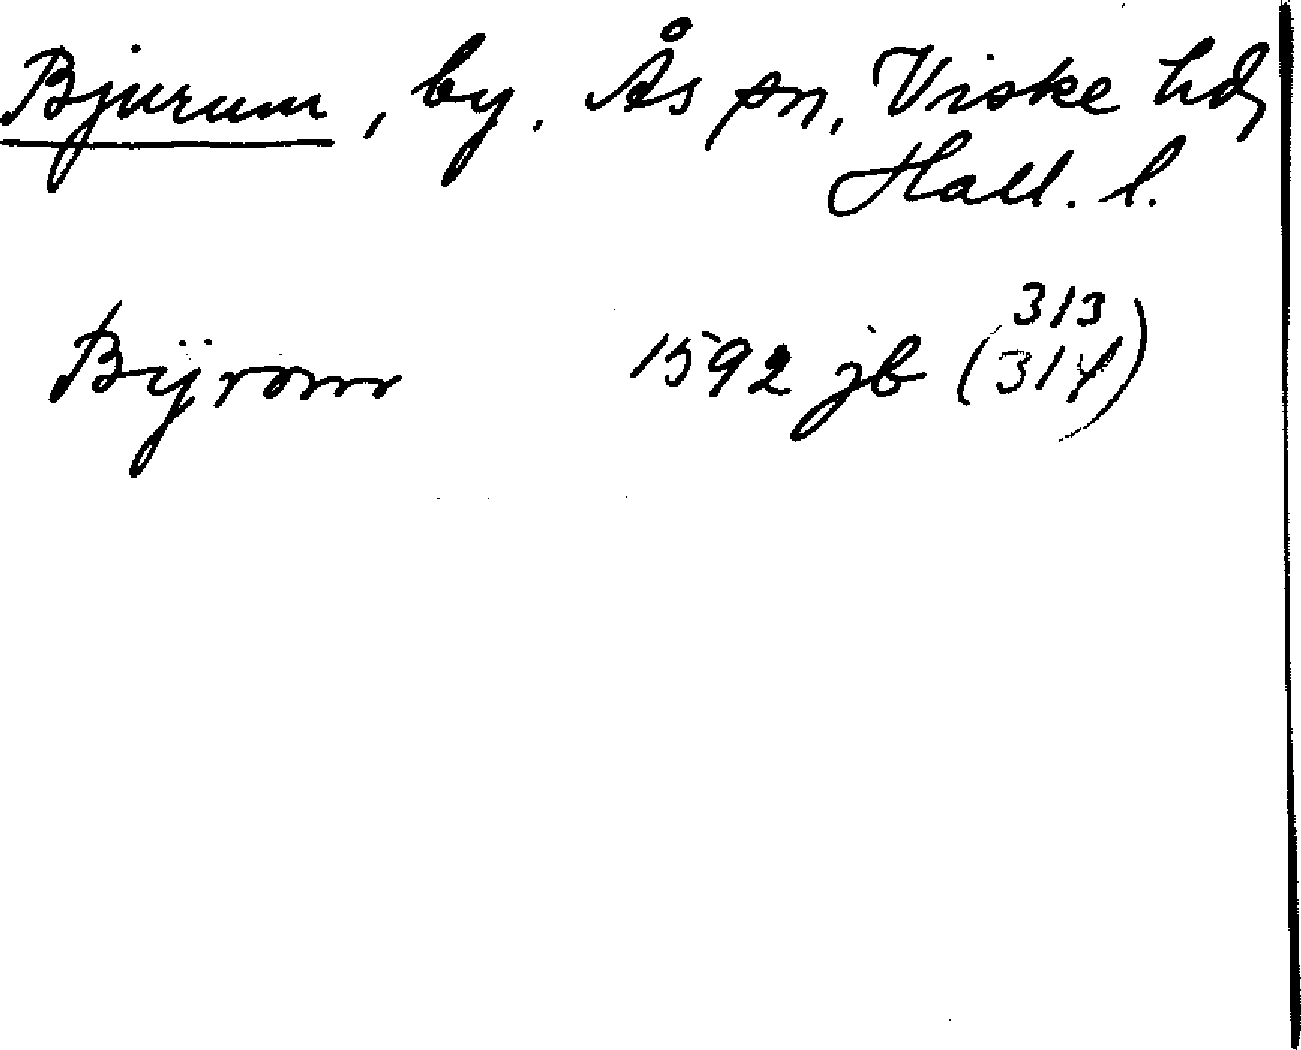 Bjurum, by, Ås sn, Viske hd,
Hall. l.
Bÿrom 1592 jb (314)
313